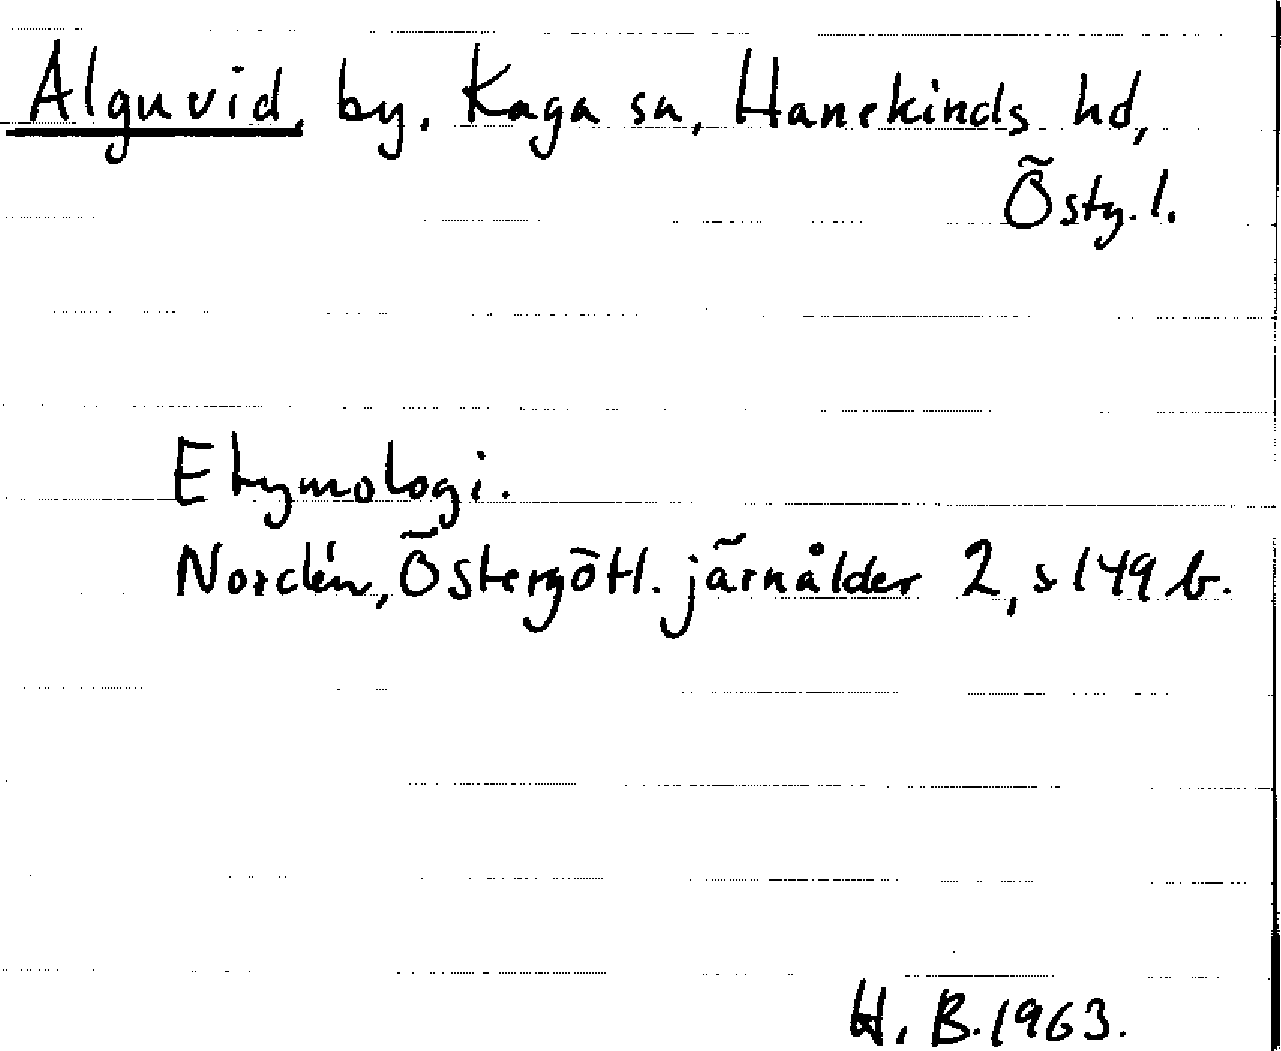 Alguvid, by, Kaga sn, Hanekinds hd,
Östg. l.
Etymologi.
Nordén, Östergötl. järnålder 2, s 149 b.
H. B. 1963.